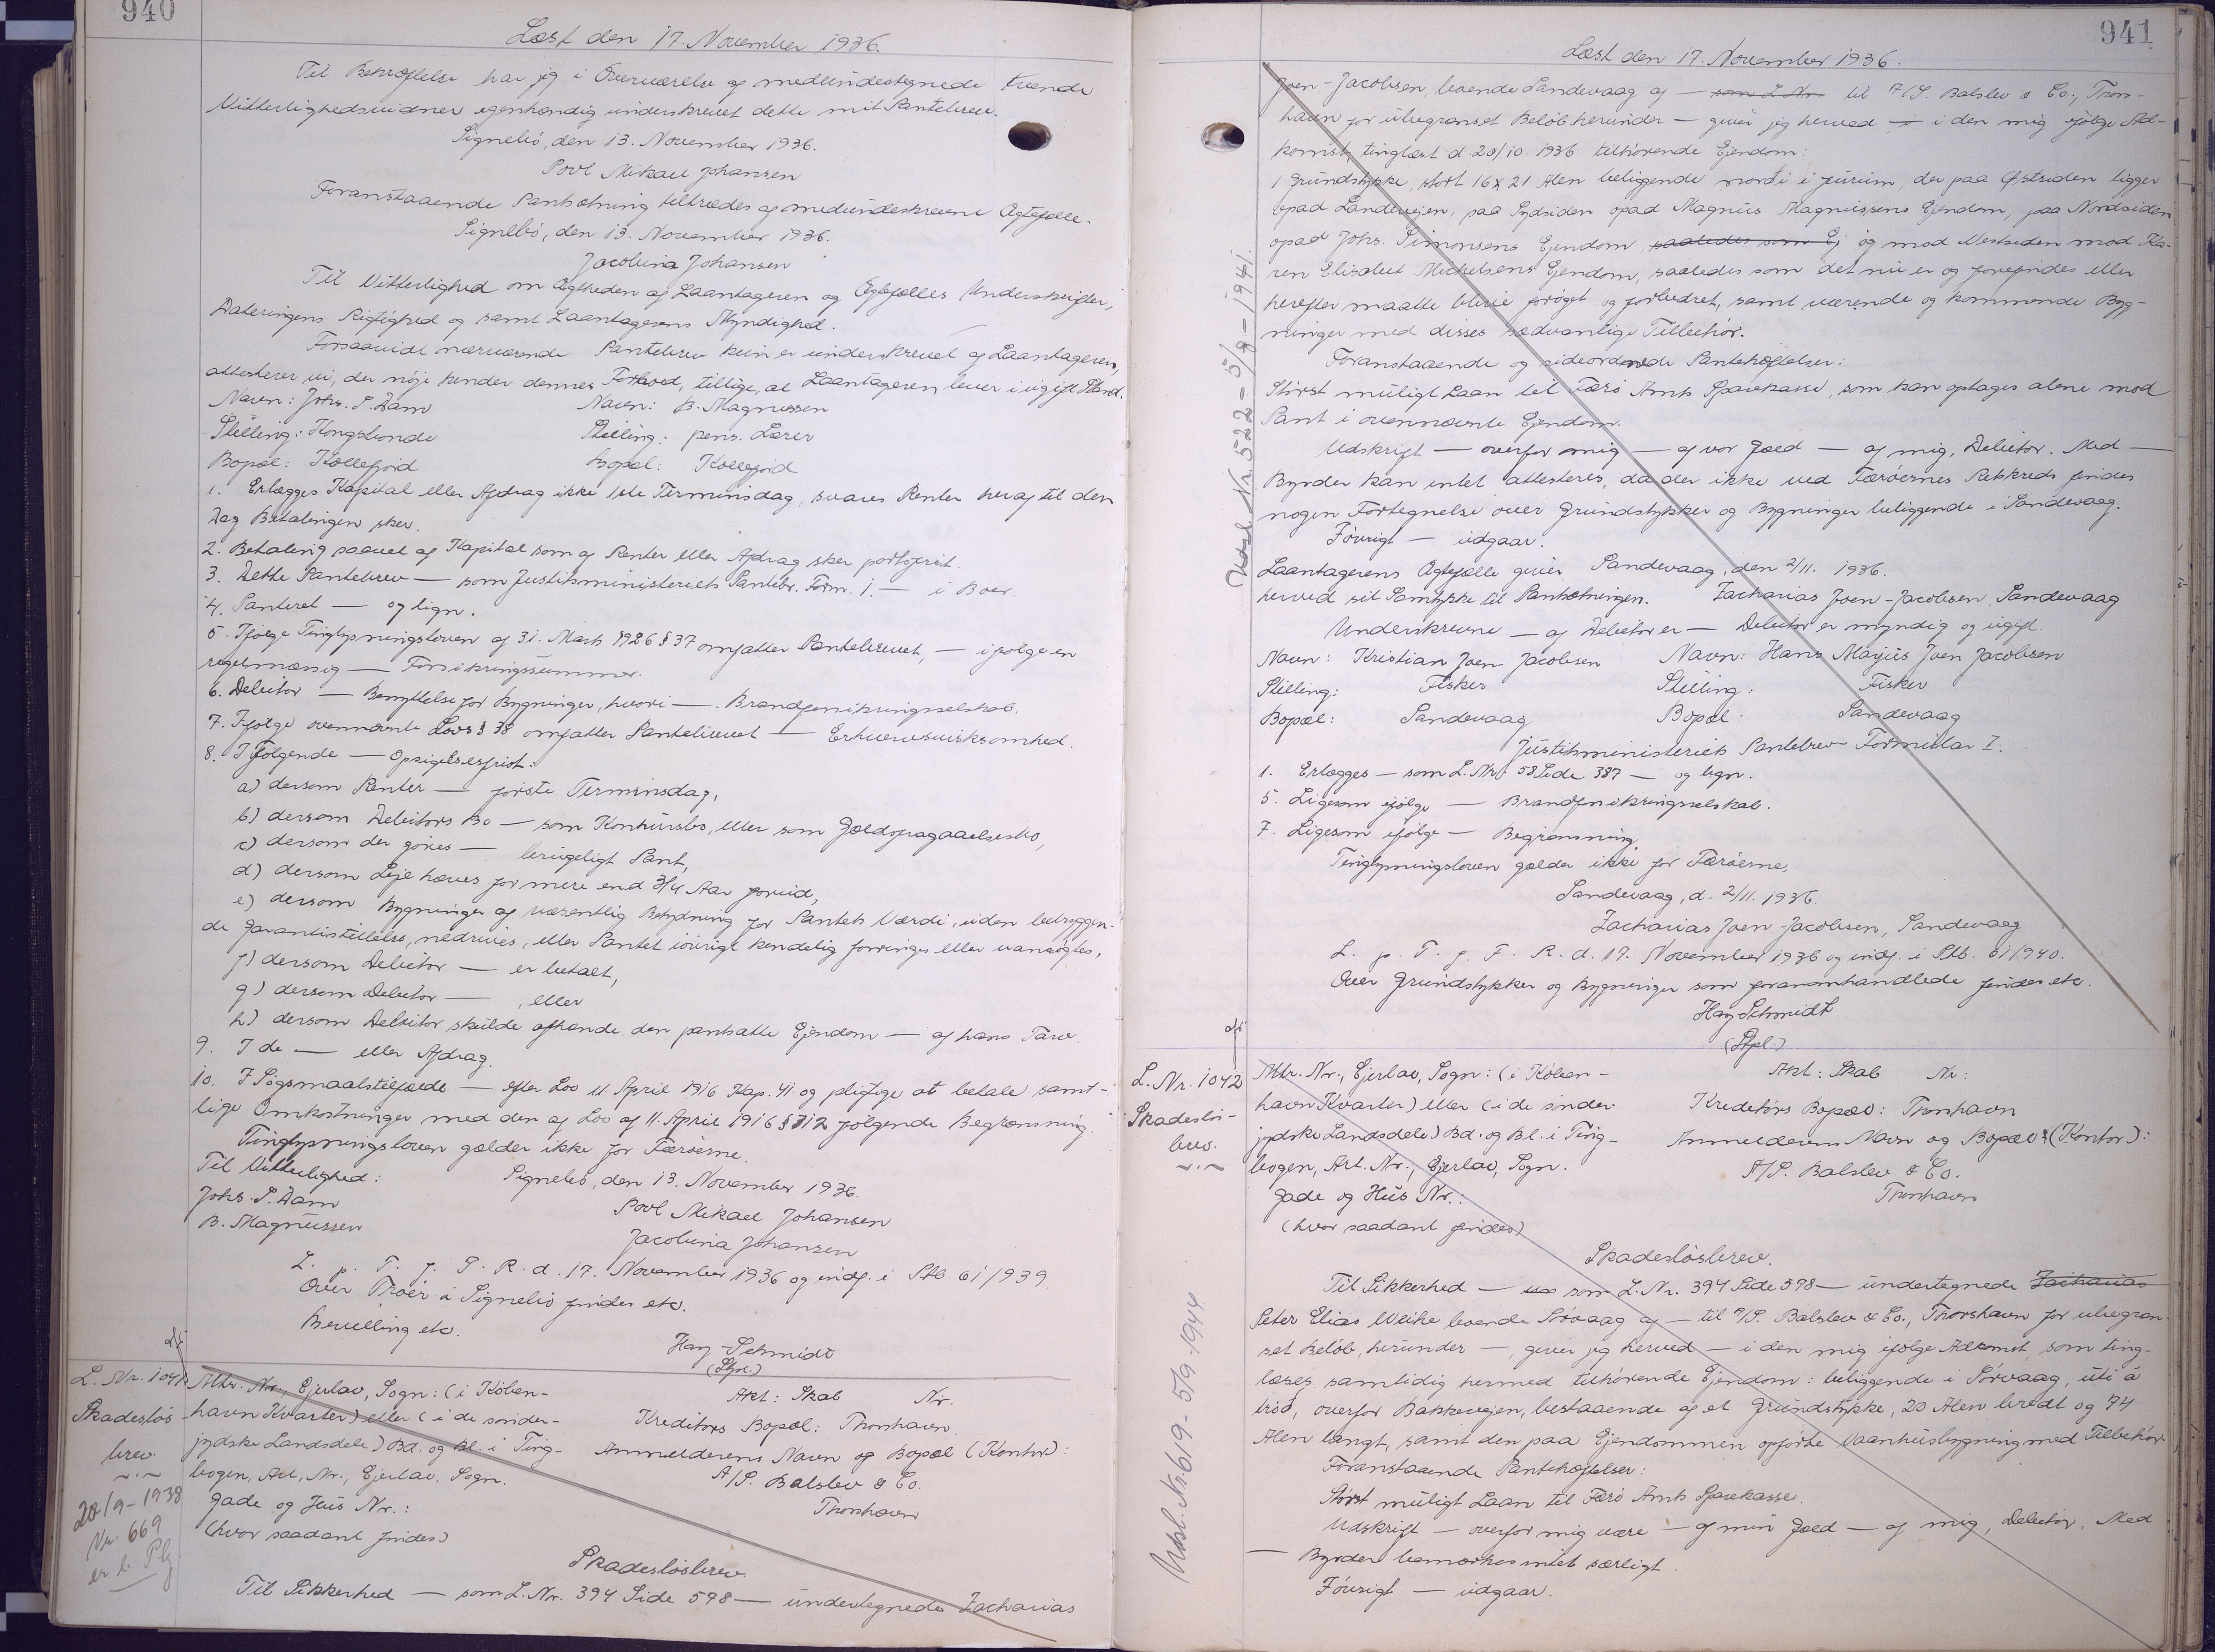 940
Læst den 17. November 1936.
Til Bekræftelse har jeg i Overværelse af medundertegnede tvende
Vitterlighedsvidner egenhændig underskrevet dette mit Pantebrev.
Signebö, den 13. November 1936.
Povl Mikael Johansen
Foranstaaende Pantsætning tiltrædes af medunderskrevne Ægtefælle.
Signebö, den 13. November 1936.
Jacobina Johansen
Til Vitterlighed om Ægtheden af Laantageren og Ægtefælles Underskrifter,
Dateringens Rigtighed og samt Laantagerens Myndighed.
Forsaavidt nærværende Pantebrev kun er underskrevet af Laantageren,
attesterer vi, der nöje kender dennes Forhold, tillige, at Laantageren lever i ugift Stand.
Navn: Johs. P. Dam Navn: B. Magnussen
Stilling: Kongsbonde Stilling: pens. Lærer
Bopæl: Kollefjord Bopæl: Kollefjord
1. Erlægges Kapital eller Afdrag ikke 1ste Terminsdag, svares Renter heraf til den
Dag Betalingen sker.
2. Betaling saavel af Kapital som af Renter eller Afdrag sker portofrit.
3. Dette Pantebrev — som Justitsministeriets Pantebr. Form. 1. — i Boer.
4. Panteret — og lign.
5. Ifølge Tinglysningsloven af 31. Marts 1926 § 37 omfatter Pantebrevet, — ifølge en
regelmæssig — Forsikringssummer.
6. Debitor — Benyttelse for Bygninger, hvori — Brandforsikringsselskab.
7. Ifølge ovennævnte Lovs § 38 omfatter Pantebrevet — Erhvervsvirksomhed.
8. I Følgende — Opsigelsesfrist:
a) dersom Renter — første Terminsdag,
b) dersom Debitors Bo — som Konkursbo, eller som Gældsfragaaelsesbo,
c) dersom der gøres — brugeligt Pant,
d) dersom Leje hæves for mere end 3/4 Aar forud,
e) dersom Bygninger af væsentlig Betydning for Pantets Værdi, uden betryggen-
de Garantistillelse, nedrives, eller Pantet iövrigt kendelig forringes eller vanrögtes,
f) dersom Debitor — er betalt,
g) dersom Debitor — , eller
h) dersom Debitor skulde afhænde den pantsatte Ejendom — af hans Tarv.
9. I de — eller Afdrag.
10. I Sögsmaalstilfælde — efter Lov 11 April 1916 Kap. 41 og pligtige at betale samt-
lige Omkostninger med den af Lov af 11. April 1916 § 312 følgende Begrænsning.
Tinglysningsloven gælder ikke for Færöerne.
Til Vitterlighed: Signebö, den 13. November 1936.
Johs. P. Dam Povl Mikael Johansen
B. Magnussen Jacobina Johansen
L. p. T. f. F. R. d. 17. November 1936 og indf. i Ptb. 61/939.
Over Tröer i Signebö findes etc.
Bevilling etc.
Hay-Schmidt
(Stpl.)
L. Nr. 1041 Mtr. Nr., Ejerlav, Sogn: (i Köben- Akt: Skab Nr.
Skadeslös- havn Kvarter) eller (i de sönder- Kreditors Bopæl: Thorshavn
brev jydske Landsdele) Bd. og Bl. i Ting- Anmelderens Navn og Bopæl (Kontor):
bogen, Art. Nr., Ejerlav, Sogn. A/S. Balslev & Co.
20/9-1938 Gade og Hus Nr.: Thorshavn
Nr. 669 (hvor saadant findes)
Skadeslösbrev.
Til Sikkerhed — som L. Nr. 394 Side 578 — undertegnede Zacharias
941
Læst den 17. November 1936.
Joen-Jacobsen, boende Sandevaag af — som L. Nr. til A/S. Balslev & Co., Thors-
havn for ubegrænset Beløb herunder — giver jeg herved — i den mig ifølge Ad-
komst, tinglæst d. 20/10. 1936 tilhørende Ejendom:
1 Grundstykke, stort 16 x 21 Alen beliggende nordi i Jurum, der paa Østsiden ligger
opad Landevejen, paa Sydsiden opad Magnus Magnussens Ejendom, paa Nordsiden
opad Johs. Simonsens Ejendom, saaledes som Ej og mod Vestsiden mod Ka-
ren Elisabet Mickelsens Ejendom, saaledes som det nu er og forefindes eller
herefter maatte blive forøget og forbedret, samt værende og kommende Byg-
ninger med disses sædvanlige Tilbehör.
Foranstaaende og sideordnede Pantehæftelser:
Störst muligt Laan til Færö Amts Sparekasse, som kan optages alene mod
Pant i ovennævnte Ejendom.
Udskrift — overfor mig — af vor Gæld — af mig, Debitor. Med —
Byrder kan intet attesteres, da der ikke ved Færöernes Retskreds findes
nogen Fortegnelse over Grundstykker og Bygninger beliggende i Sandevaag.
Iövrigt — udgaar.
Laantagerens Ægtefælle giver Sandevaag, den 2/11. 1936.
herved sit Samtykke til Pantsætningen. Zacharias Joen-Jacobsen, Sandevaag
Underskrevne — af Debitor er — Debitor er myndig og ugift.
Navn: Kristian Joen-Jacobsen Navn: Hans Marjus Joen Jacobsen
Stilling: Fisker Stilling: Fisker
Bopæl: Sandevaag Bopæl: Sandevaag
Justitsministeriets Pantebrev Formular I.
1. Erlægges — som L. Nr. 58 Side 387 — og lign.
5. Ligesom ifølge — Brandforsikringsselskab.
7. Ligesom ifølge — Begrænsning.
Tinglysningsloven gælder ikke for Færöerne.
Sandevaag, d. 2/11. 1936.
Zacharias Joen-Jacobsen, Sandevaag
L. p. T. f. F. R. d. 17. November 1936 og indf. i Ptb. 61/940.
Over Grundstykker og Bygninger som foranomhandlede findes etc.
Hay Schmidt
(Stpl.)
Udsl. Nr. 522 - 5/8-1941.
L. Nr. 1042 Mtr. Nr., Ejerlav, Sogn: (i Köben- Akt: Skab Nr:
Skadeslös- havn Kvarter) eller (i de sönder- Kreditors Bopæl: Thorshavn
brev. jydske Landsdele) Bd. og Bl. i Ting- Anmelderens Navn og Bopæl (Kontor):
bogen, Art. Nr., Ejerlav, Sogn. A/S. Balslev & Co.
Gade og Hus Nr.: Thorshavn
(hvor saadant findes)
Skadeslösbrev.
Til Sikkerhed — som L. Nr. 394 Side 578 — undertegnede Zacharias
Peter Elias Weihe boende Sörvaag af — til A/S. Balslev & Co., Thorshavn for ubegræn-
set Beløb, herunder —, giver jeg herved — i den mig ifølge Adkomst, som ting-
læses samtidig hermed tilhørende Ejendom: beliggende i Sörvaag, úti á
tröd, overfor Bakkevejen, bestaaende af et Grundstykke, 20 Alen bredt og 74
Alen langt, samt den paa Ejendommen opförte Vaanhusbygning med Tilbehör.
Foranstaaende Pantehæftelser:
Störst muligt Laan til Færö Amts Sparekasse.
Udskrift — overfor mig være — af min Gæld — af mig, Debitor. Med
— Byrder bemærkes intet særligt.
Iövrigt — udgaar.
Udsl. Nr. 619 - 5/9-1944